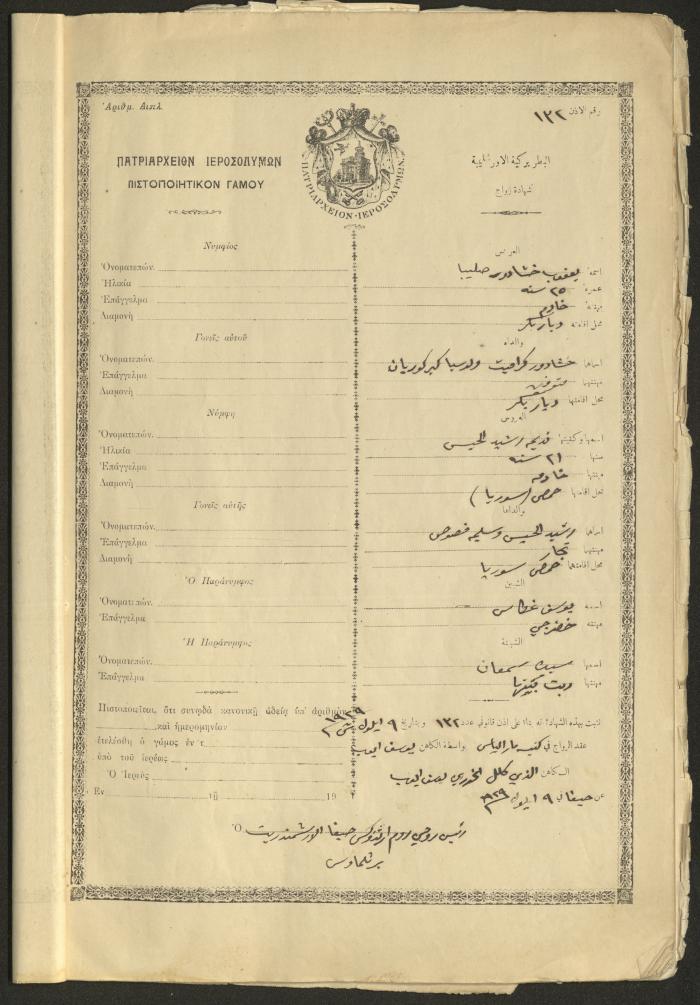 Ἀριθμ. Διπλ.
رقم الاذن ١٣٢
ΠΑΤΡΙΑΡΧΕΙΟΝ ΙΕΡΟΣΟΛΥΜΩΝ
ΠΙΣΤΟΠΟΙΗΤΙΚΟΝ ΓΑΜΟΥ
ΠΑΤΡΙΑΡΧΕΙΟΝ·ΙΕΡΟΣΟΛΥΜΩΝ
البطريركية الاورشليمية
شهادة زواج
Νυμφίος
Ὀνοματεπών.
Ἡλικία
Ἐπάγγελμα
Διαμονή
Γονεῖς αὐτοῦ
Ὀνοματεπών.
Ἐπάγγελμα
Διαμονή
Νύμφη
Ὀνοματεπών.
Ἡλικία
Ἐπάγγελμα
Διαμονή
Γονεῖς αὐτῆς
Ὀνοματεπών.
Ἐπάγγελμα
Διαμονή
Ὁ Παράνυμφος
Ὀνοματεπών.
Ἐπάγγελμα
Ἡ Παράνυμφος
Ὀνοματεπών.
Ἐπάγγελμα
Πιστοποιεῖται, ὅτι συνῳδὰ κανονικῇ ἀδείᾳ ὑπ' ἀριθμὸν
καὶ ἡμερομηνίαν
ἐτελέσθη ὁ γάμος ἐν τ
ὑπὸ τοῦ ἱερέως
Ὁ Ἱερεὺς
Ἐν τῇ 19
Ὁ
العريس
اسمه يعقوب خشادور صليبا
عمره ٢٥ سنة
مهنته خادم
محل اقامته دياربكر
والداه
اسماهما خشادور كرابيت
مهنتهما متوفى
محل اقامتهما دياربكر
العروس
اسمها وكنيتها رشيد الخيس
سنها ٢١ سنة
مهنتها خادمة
محل اقامتها حمص (سوريا)
والداها
اسماهما رشيد الخيس وسليمة
مهنتهما تجار
محل اقامتهما حمص سوريا
الشبين
اسمه يوسف غطاس
مهنته خضرجي
الشبينة
اسمها سمعان
مهنتها ربت بيتها
نثبت بهذه الشهادة انه بناء على اذن قانوني عدد ١٣٢ وبتاريخ ٩ ايلول سنة ١٩٢٩
عقد الزواج في كنيسة مار الياس بواسطة الكاهن يوسف
الكاهن الذي كلل الخوري يوسف
عن حيفا في ٩ ايلول ١٩٢٩
رئيس روحي روم ارثوذكس حيفا الارشمندريت
برثلماوس